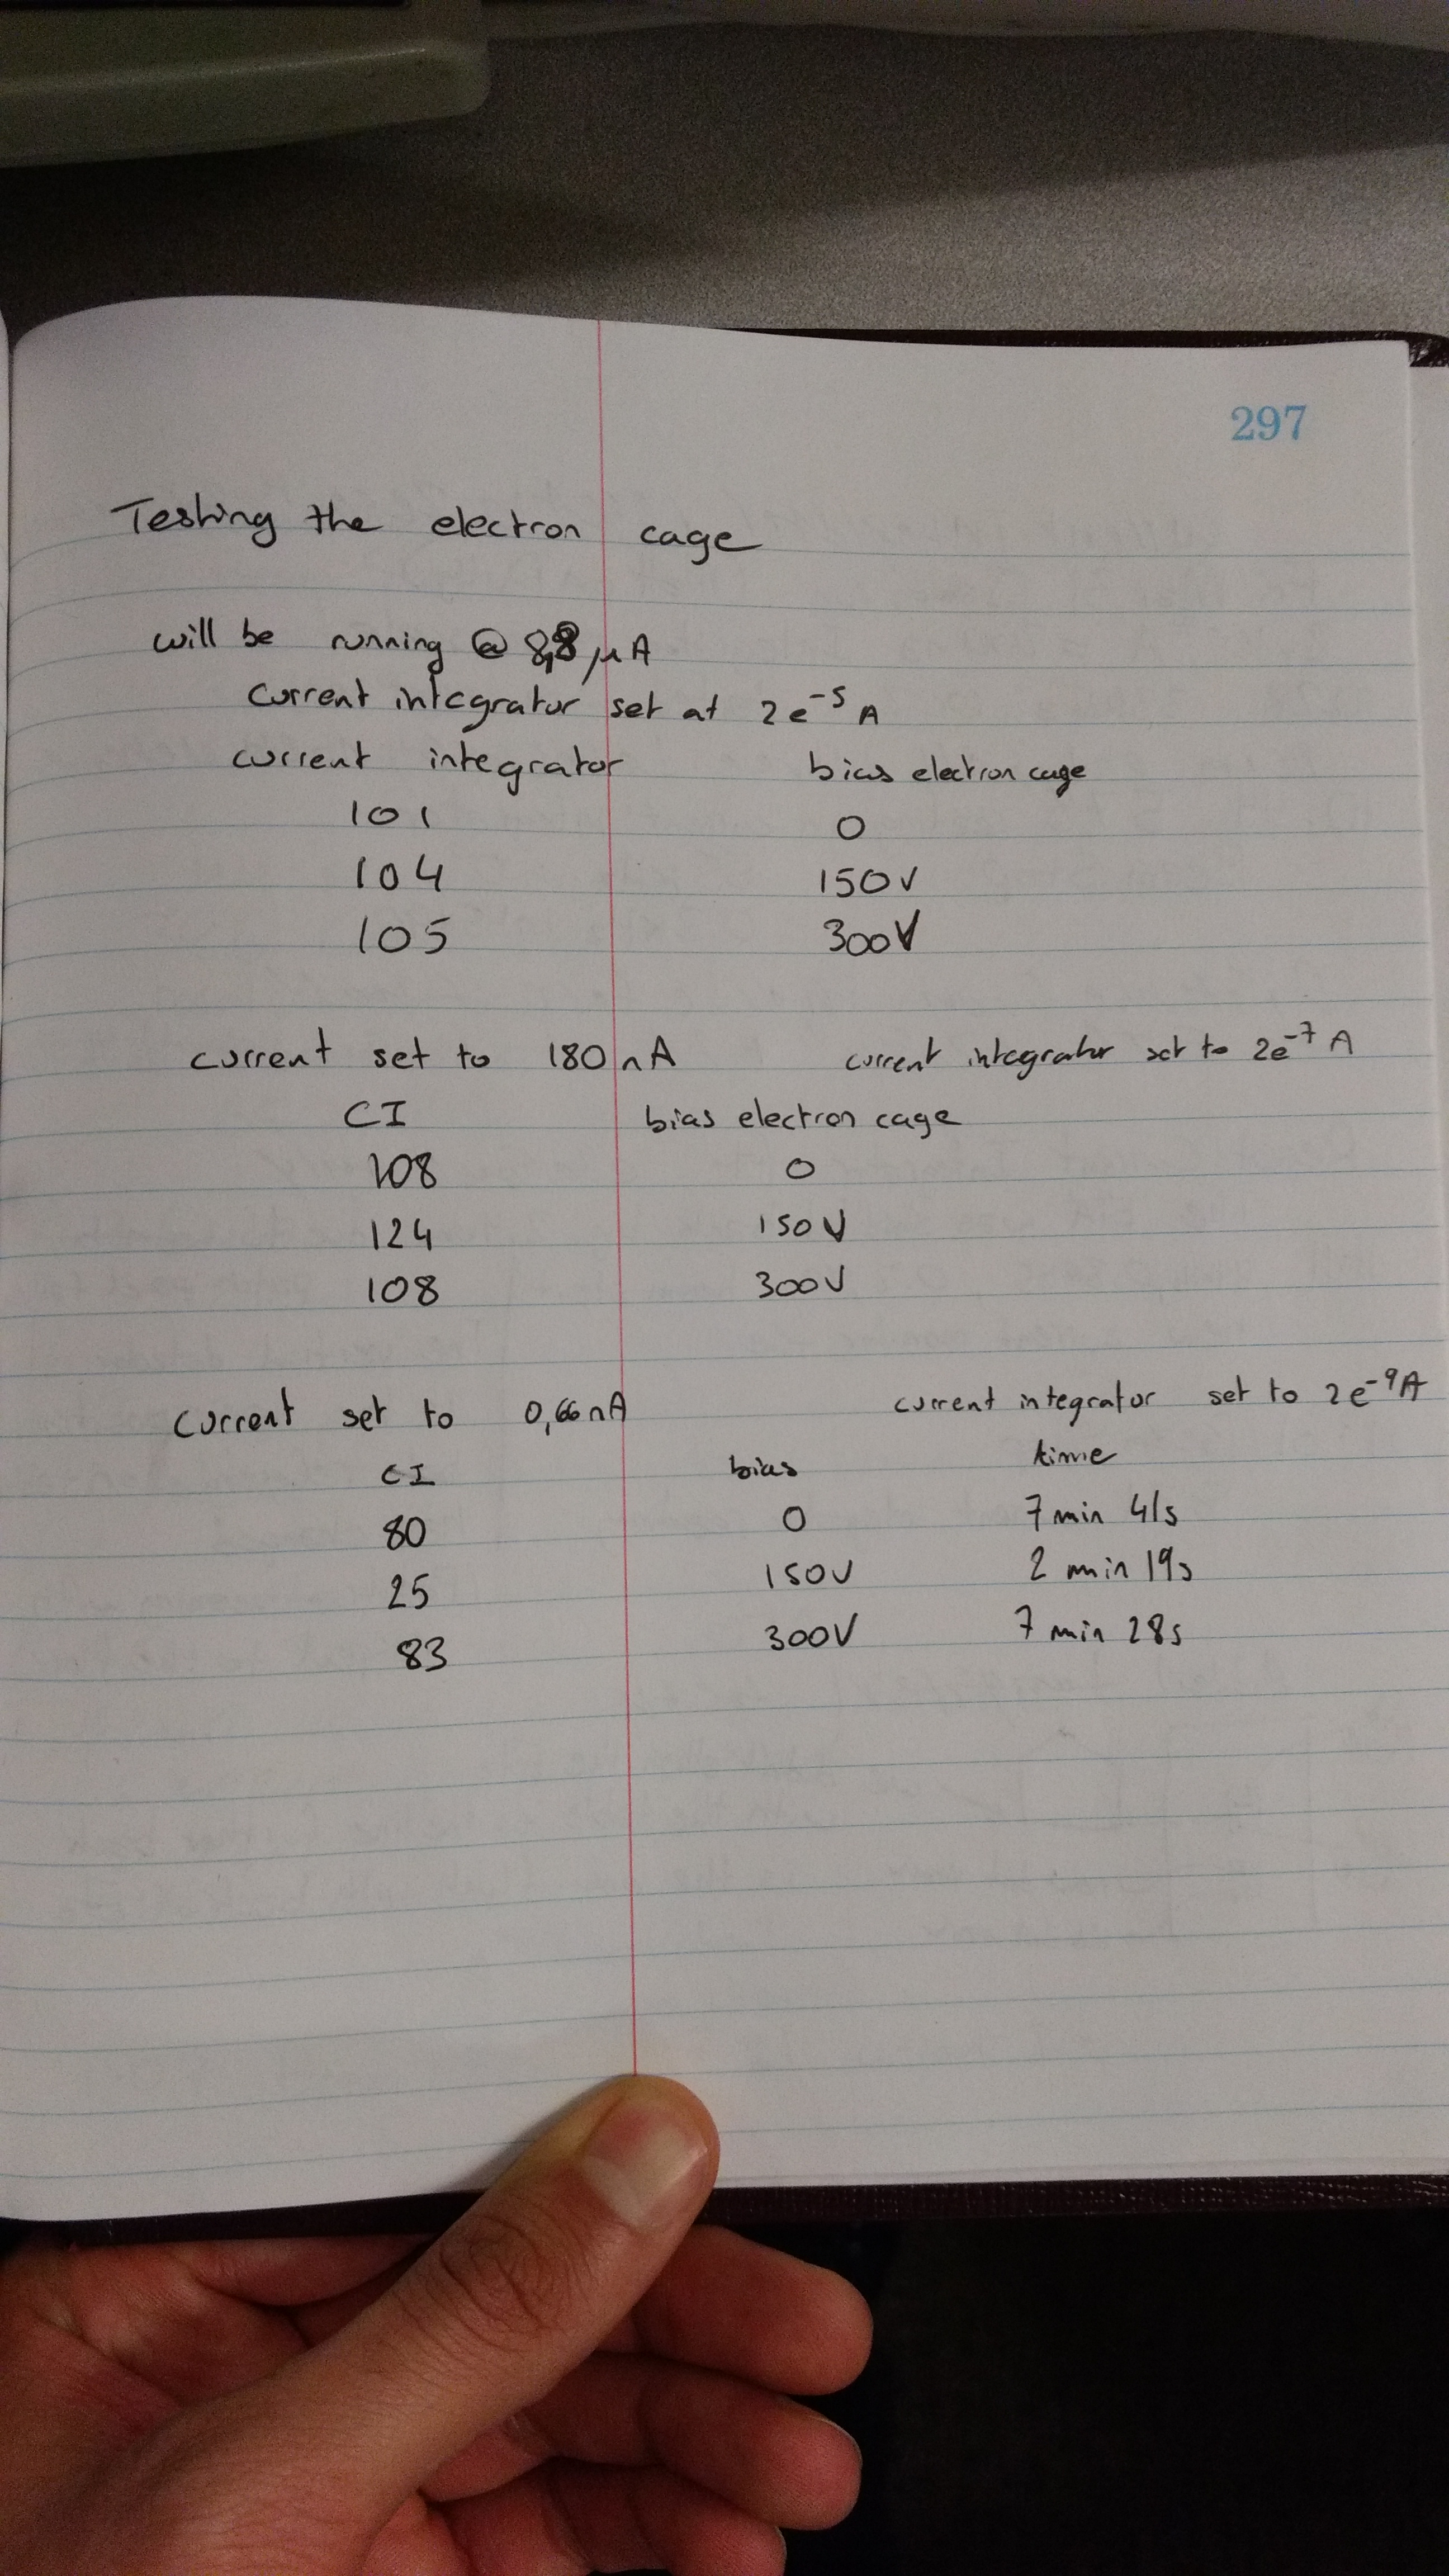 297
Testing the electron cage
will be running @ 8,8 μA
current integrator set at 2e⁻⁵ A
current integrator bias electron cage
101 0
104 150V
105 300V
current set to 180 nA current integrator set to 2e⁻⁷ A
CI bias electron cage
108 0
124 150V
108 300V
current set to 0,66 nA current integrator set to 2e⁻⁹A
CI bias time
80 0 7 min 41s
25 150V 2 min 19s
83 300V 7 min 28s